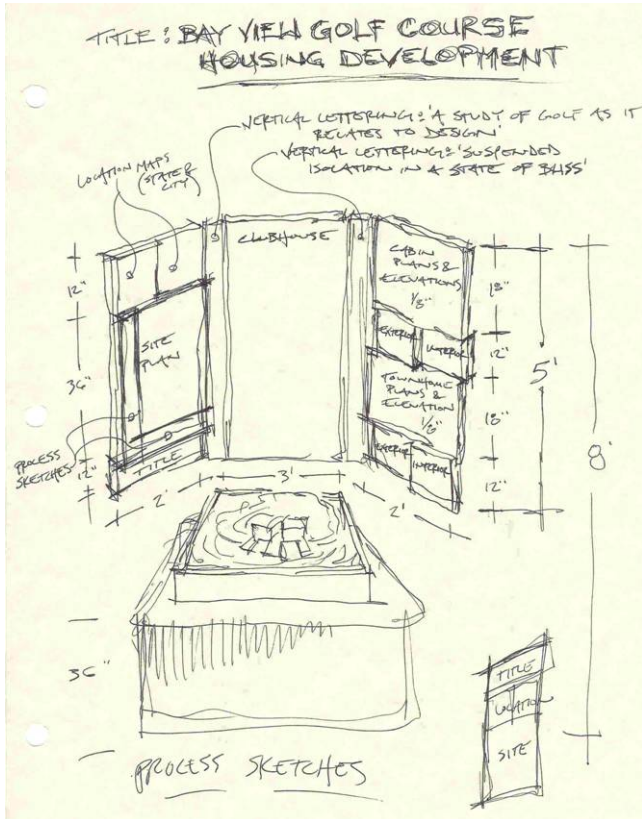 TITLE: BAY VIEW GOLF COURSE
HOUSING DEVELOPMENT
VERTICAL LETTERING: 'A STUDY OF GOLF AS IT
RELATES TO DESIGN'
VERTICAL LETTERING: 'SUSPENDED
ISOLATION IN A STATE OF BLISS'
LOCATION MAPS
(STATE &
CITY)
CLUBHOUSE
CABIN
PLANS &
ELEVATIONS
1/8"
EXTERIOR
INTERIOR
TOWNHOME
PLANS &
ELEVATION
1/8"
EXTERIOR
INTERIOR
SITE
PLAN
PROCESS
SKETCHES
TITLE
12"
36"
12"
18"
12"
18"
12"
5'
8'
2'
3'
2'
36"
TITLE
LOCATION
SITE
PROCESS SKETCHES